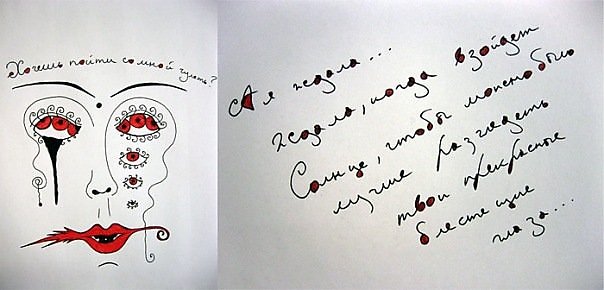 Хочешь пойти со мной гулять?
А я ждала...
Ждала, когда взойдет
Солнце, чтобы можно было
лучше разглядеть
твои прекрасные
блестящие
глаза...